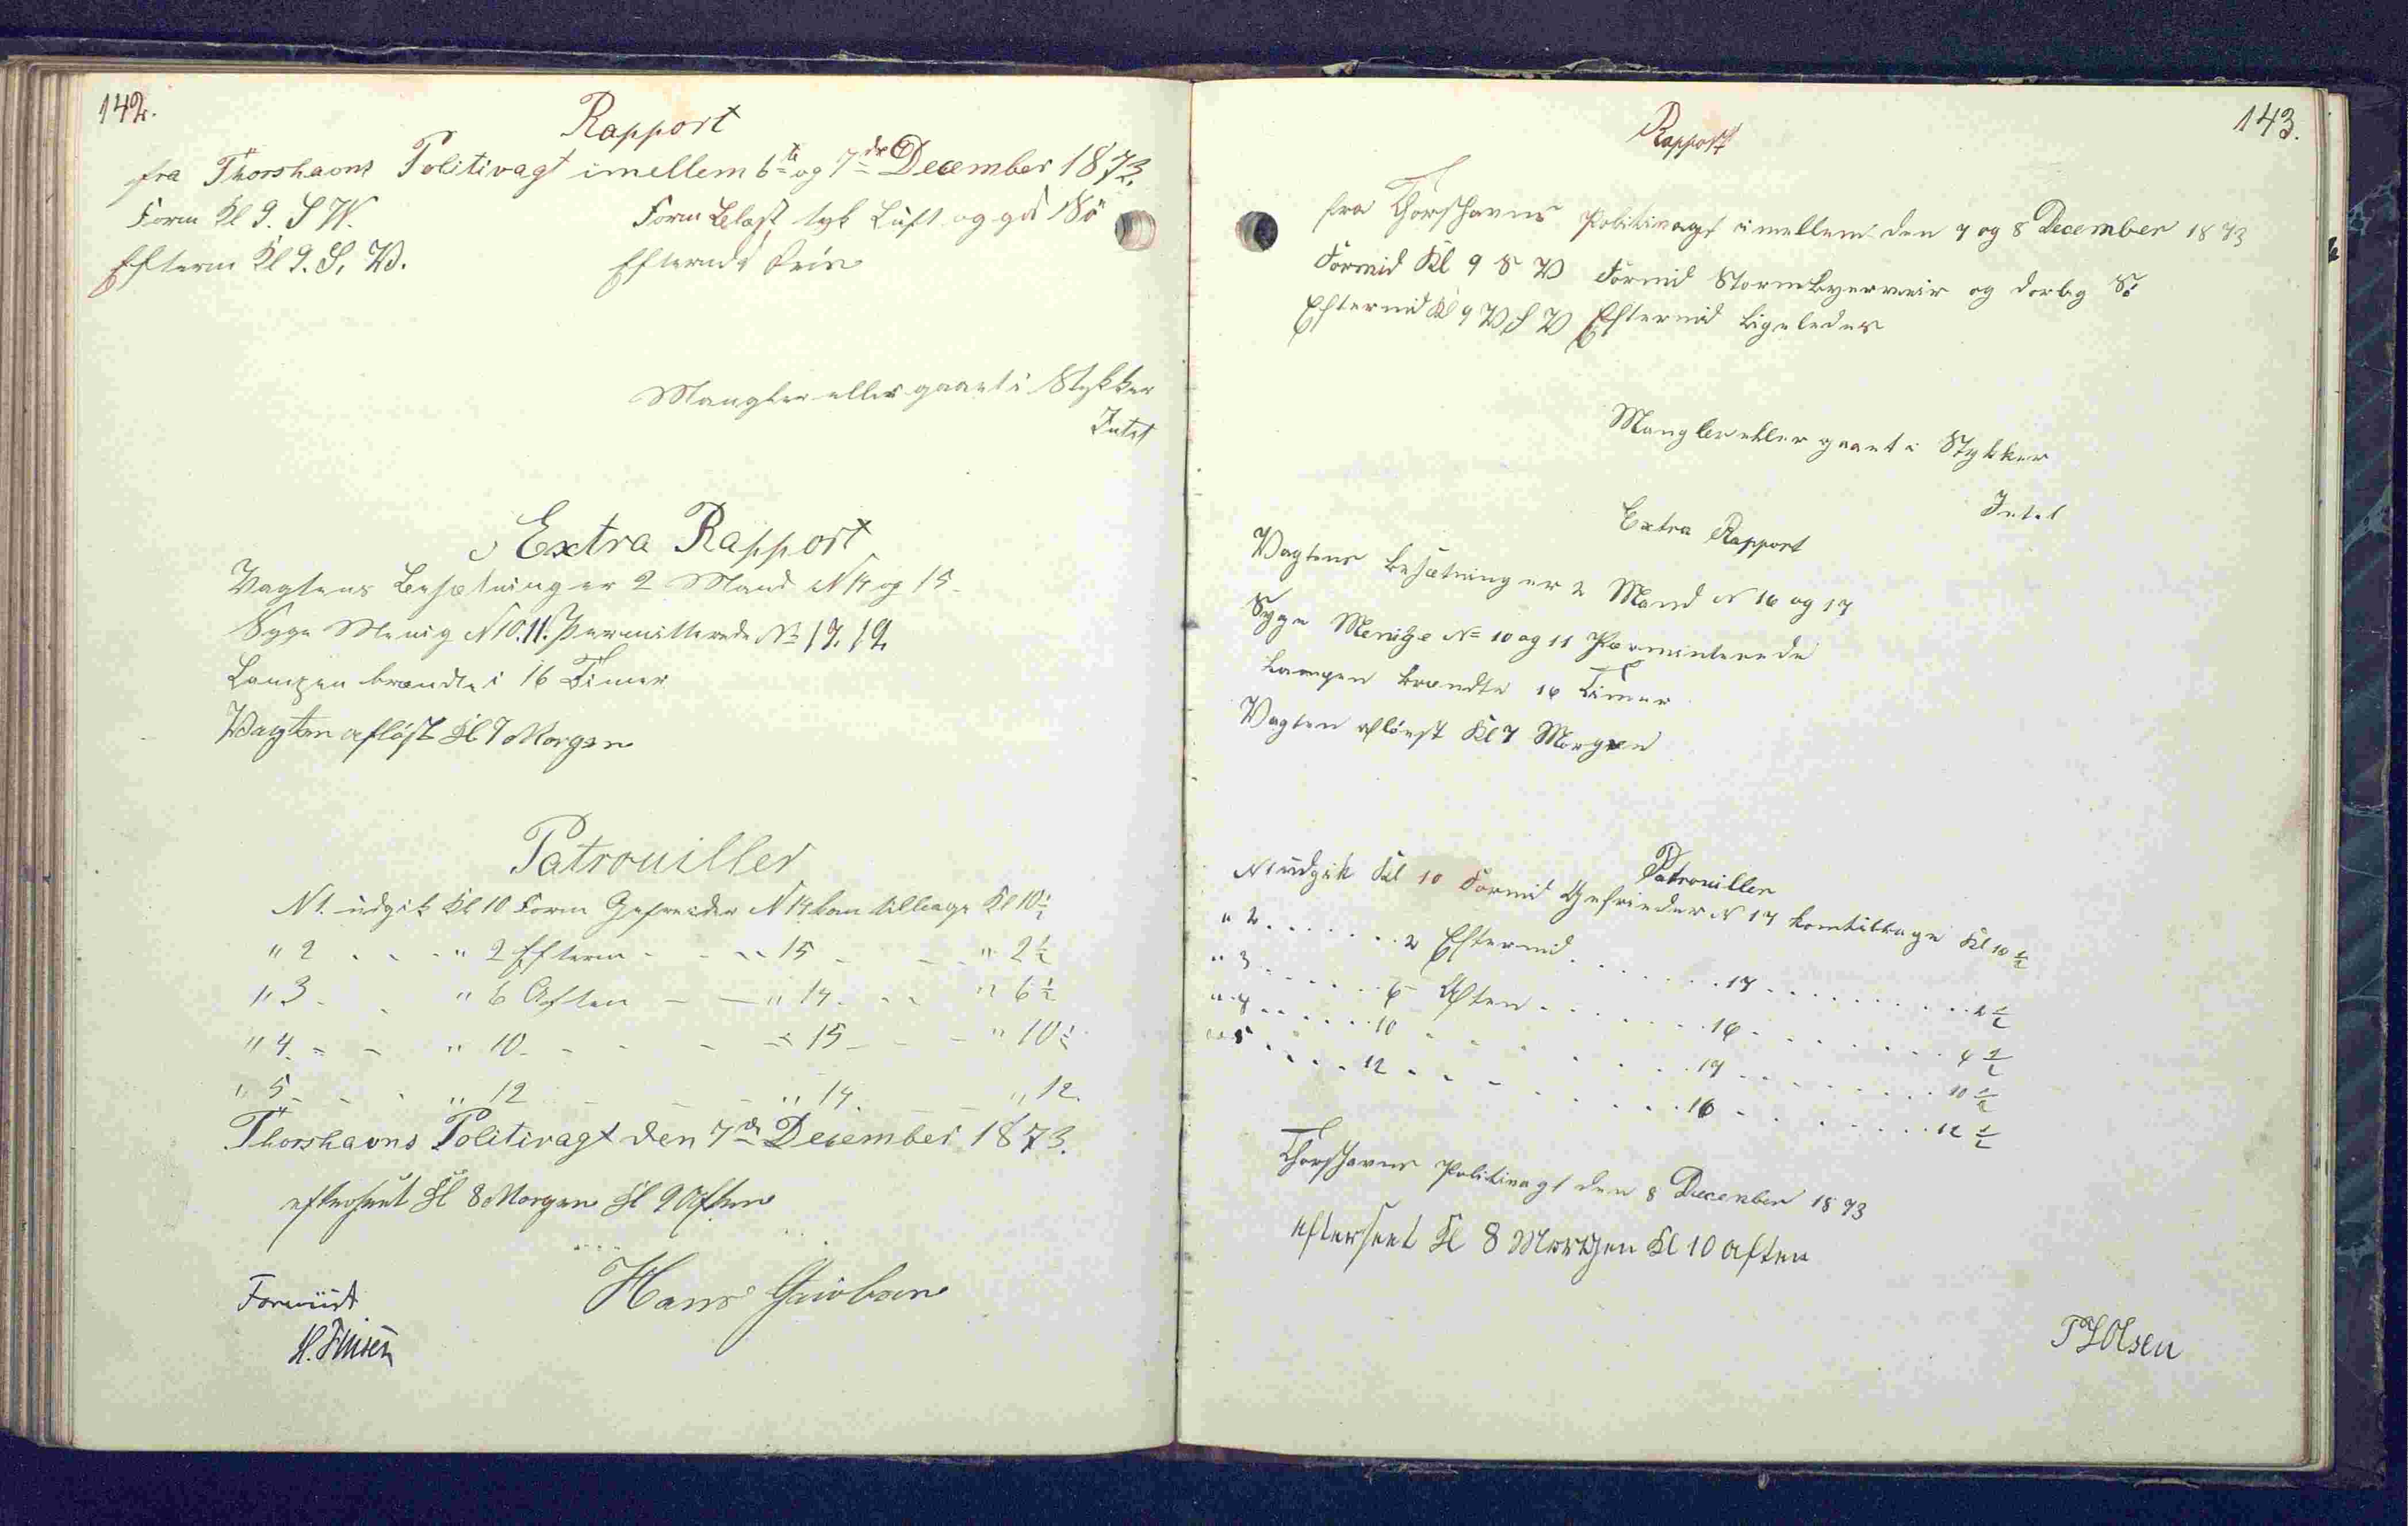 142.
Rapport
fra Thorshavns Politivagt imellem 6te og 7de December 1873.
Form Kl 9. S W. Form Blæst tyk Luft og god Sö
Efterm Kl 9. S. W. Eftermd
Mangler eller gaaet i Stykker
Intet
Extra Rapport
Vagtens Besætning er 2 Mand N 14 og 15.
Syge Menig N 10. 11. Permitterede No 17. 19.
Lampen brændte i 16 Timer
Vagten aflöst Kl 7 Morgen
Patrouiller
N 1. udgik Kl 10 Form Gefreider N 14 kom tilbage Kl 10 1/2
" 2 - - - " 2 Efterm - - " 15 - - " 2 1/2
" 3 - - " 6 Aften - - " 14 - - " 6 1/2
" 4. - - " 10 - - - " 15 - - " 10 1/2
" 5 - - - " 12 - - " 14. - - " 12.
Thorshavns Politivagt den 7de December 1873.
efterseet Kl 8 Morgen Kl 9 Aften
Hans Jacobsen
Foreviist
H. Finsen
143.
Rapport
fra Thorshavns Politivagt imellem den 7 og 8 December 1873
Formid Kl 9 S W Formid Storm Byerveir og Sö
Eftermid Kl 9 W S W Eftermid ligeledes
Mangler eller gaaet i Stykker
Intet
Extra Rapport
Vagtens Besætning er 2 Mand N 16 og 17
Syge Menige No 10 og 11 Permiterede
Lampen brændte 16 Timer
Vagten aflöest Kl 7 Morgen
Patrouiller
N 1 udgik Kl 10 Formid Gefrieder N 17 kom tilbage Kl 10 1/2
" 2 . . . . . . . 2 Eftermid . . . . . . . 17 . . . . . . . . . 2 1/2
" 3 . . . . . . 6 Aften . . . . . . . 16 . . . . . . . . 6 1/2
" 4 . . . . . 10 . . . . . . . . 17 . . . . . . . . 10 1/2
" 5 . . . . 12 . . . . . . . . 16 . . . . . . . . 12 1/2
Thorshavns Politivagt den 8 December 1873
Efterseet Kl 8 Morgen Kl 10 Aften
Olsen